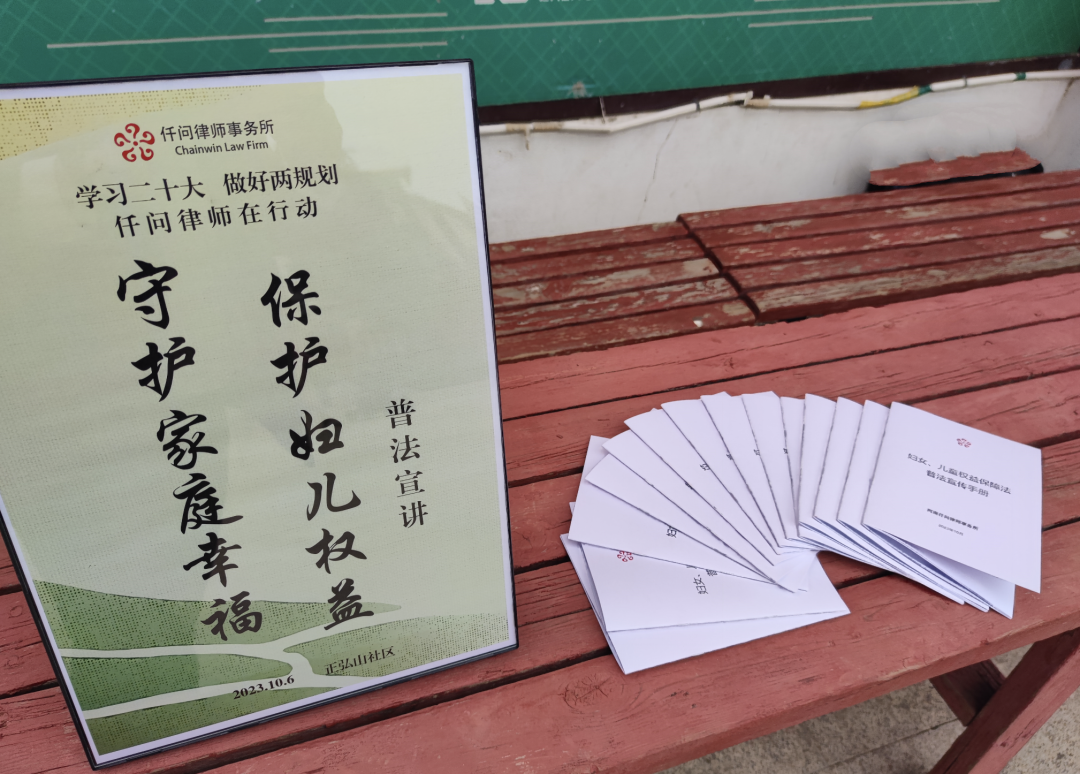 仟问律师事务所
Chainwin Law Firm
学习二十大 做好两规划
仟问律师在行动
保护妇儿权益
守护家庭幸福
普法宣讲
正弘山社区
2023.10.6
妇女、儿童权益保障法
普法宣传手册
河南仟问律师事务所
妇女、